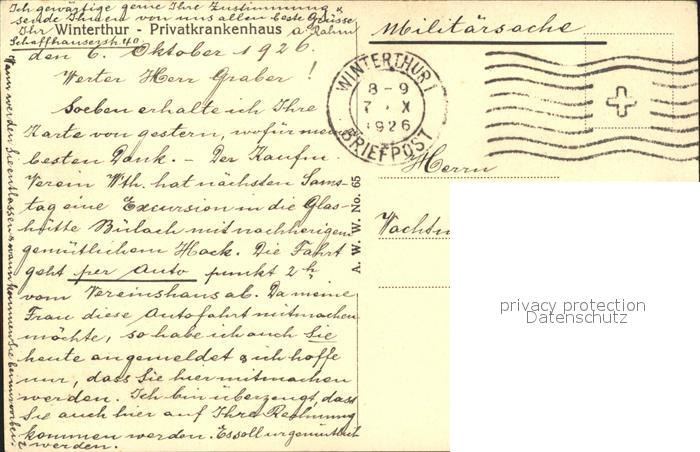 Ich gewärtige gerne Ihre Zustimmung &
sende Ihnen von uns allen beste Grüsse
Ihr
Winterthur - Privatkrankenhaus
a. Rahm
Schaffhauserstr. 40
den 6. Oktober 1926.
Werter Herr Graber!
Soeben erhalte ich Ihre
Karte von gestern, wofür meinen
besten Dank. - Der Kaufm.
Verein Wth. hat nächsten Sams-
tag eine Excursion in die Glas-
hütte Bülach mit nachherigem
gemütlichem Hock. Die Fahrt
geht per Auto punkt 2 h
vom Vereinshaus ab. Da meine
Frau diese Autofahrt mitmachen
möchte, so habe ich auch Sie
heute angemeldet & ich hoffe
nur, dass Sie hier mitmachen
werden. Ich bin überzeugt, dass
Sie auch hier auf Ihre Rechnung
kommen werden. Es soll urgemütlich
werden.
Wann werden Sie entlassen & wann kommen Sie
A. W. W. No. 65
Militärsache
WINTERTHUR 1
8-9
7. X
1926
BRIEFPOST
Herrn
Wachtm
privacy protection
Datenschutz